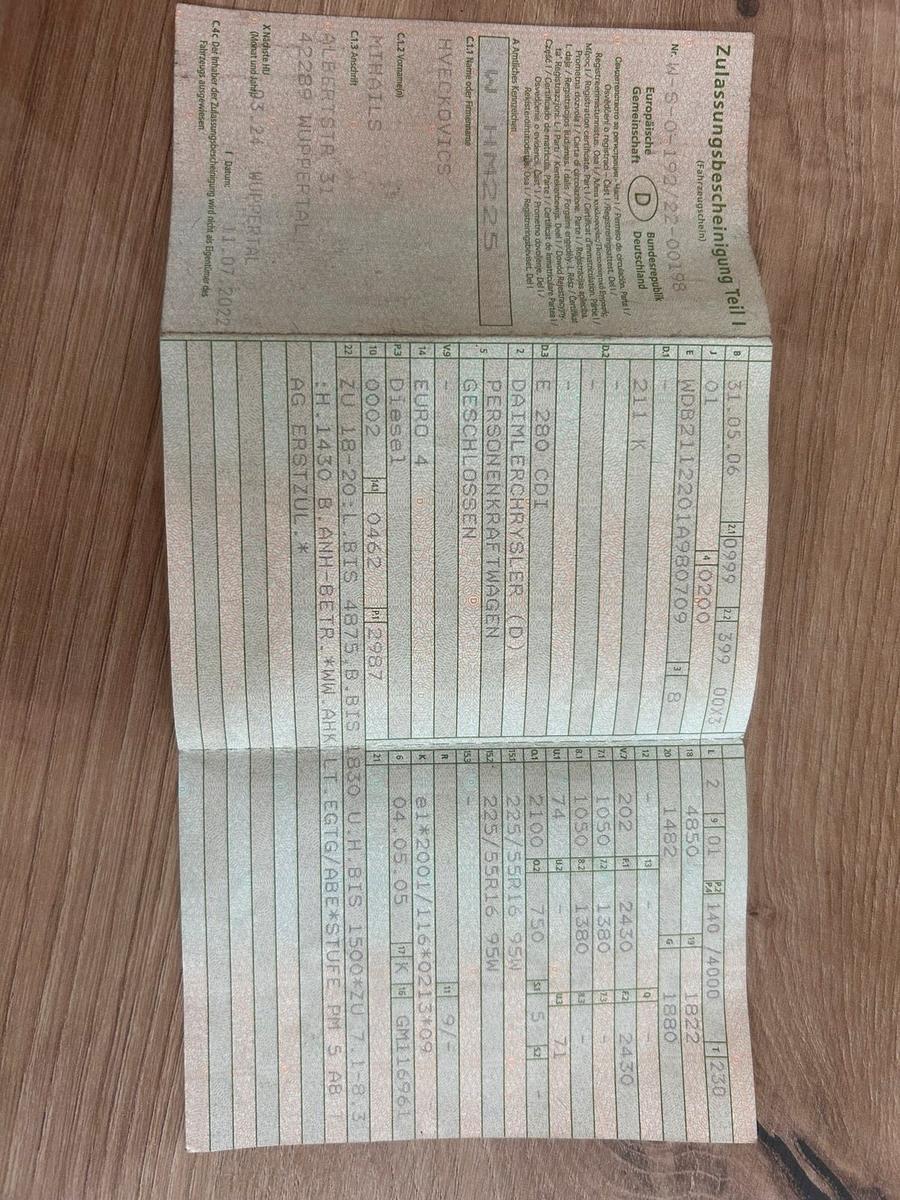 Zulassungsbescheinigung Teil I
(Fahrzeugschein)
Nr. W-S-0-192/22-00198
Europäische Gemeinschaft
D
Bundesrepublik Deutschland
A Amtliches Kennzeichen
W HM225
C.1.1 Name oder Firmenname
HVECKOVICS
C.1.2 Vorname(n)
MIHAILS
C.1.3 Anschrift
ALBERTSTR 31
42289 WUPPERTAL
X Nächste HU (Monat und Jahr)
03.24 WUPPERTAL
I Datum: 11.07.2022
C.4c Der Inhaber der Zulassungsbescheinigung wird nicht als Eigentümer des Fahrzeugs ausgewiesen.
B 31.05.06 2.1 0999 2.2 399 00X3
J 01 4 0200
E WDB2112201A980709 3 8
D.1 -
211 K
-
D.2 -
-
D.3 E 280 CDI
2 DAIMLERCHRYSLER (D)
5 PERSONENKRAFTWAGEN
GESCHLOSSEN
V.9 -
14 EURO 4
P.3 Diesel
10 0002 14.1 0462 P.1 2987
L 2 9 01 P.2 P.4 140 /4000 T 230
18 4850 19 1822
20 1482 G 1880
12 - 13 - Q -
V.7 202 F.1 2430 F.2 2430
7.1 1050 7.2 1380 7.3 -
8.1 1050 8.2 1380 8.3 -
U.1 74 U.2 - U.3 71
O.1 2100 O.2 750 S.1 5 S.2 -
15.1 225/55R16 95W
15.2 225/55R16 95W
15.3 -
R 11 9/-
K e1*2001/116*0213*09
6 04.05.05 17 K 16 GM116961
21
22 ZU 18-20:L.BIS 4875,B.BIS 1830 U.H.BIS 1500*ZU 7.1-8.3
:H.1430 B.ANH-BETR.*WW.AHK LT.EGTG/ABE*STUFE PM 5 AB T
AG ERSTZUL.*